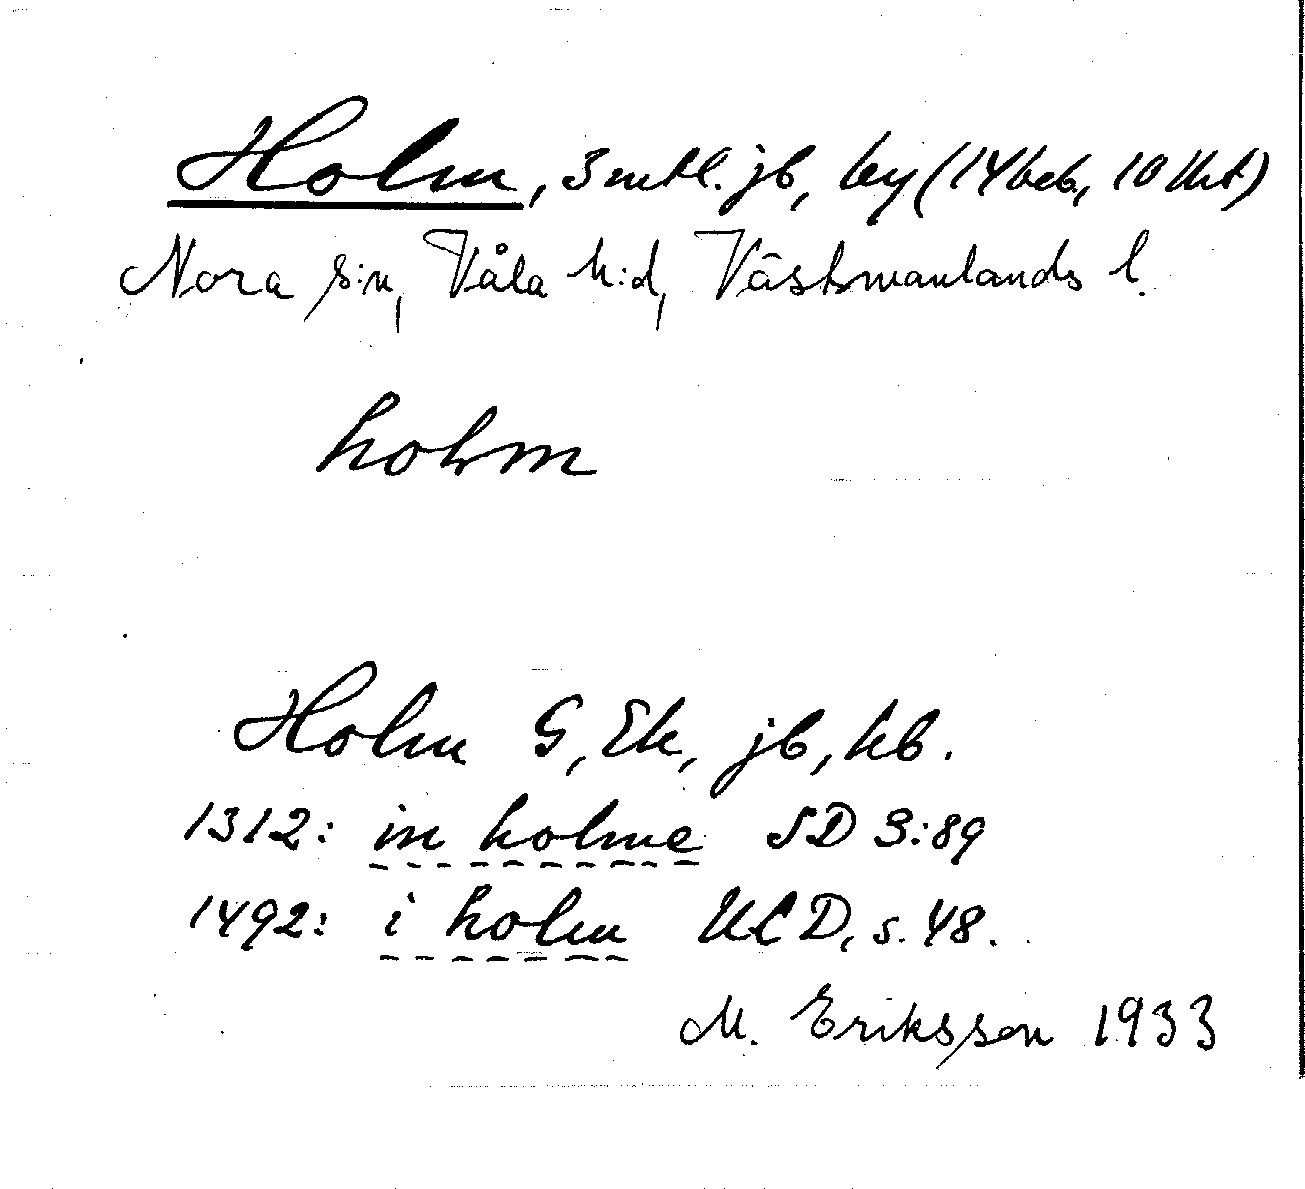 Holm, 3 mtl. jb, by (14 beb, 10
Nora s:n, Våla h:d, Västmanlands l.
holm
Holm G, Ek, jb, kb.
1312: in holme SD 3:89
1492: i holm s. 48.
M. Eriksson 1933